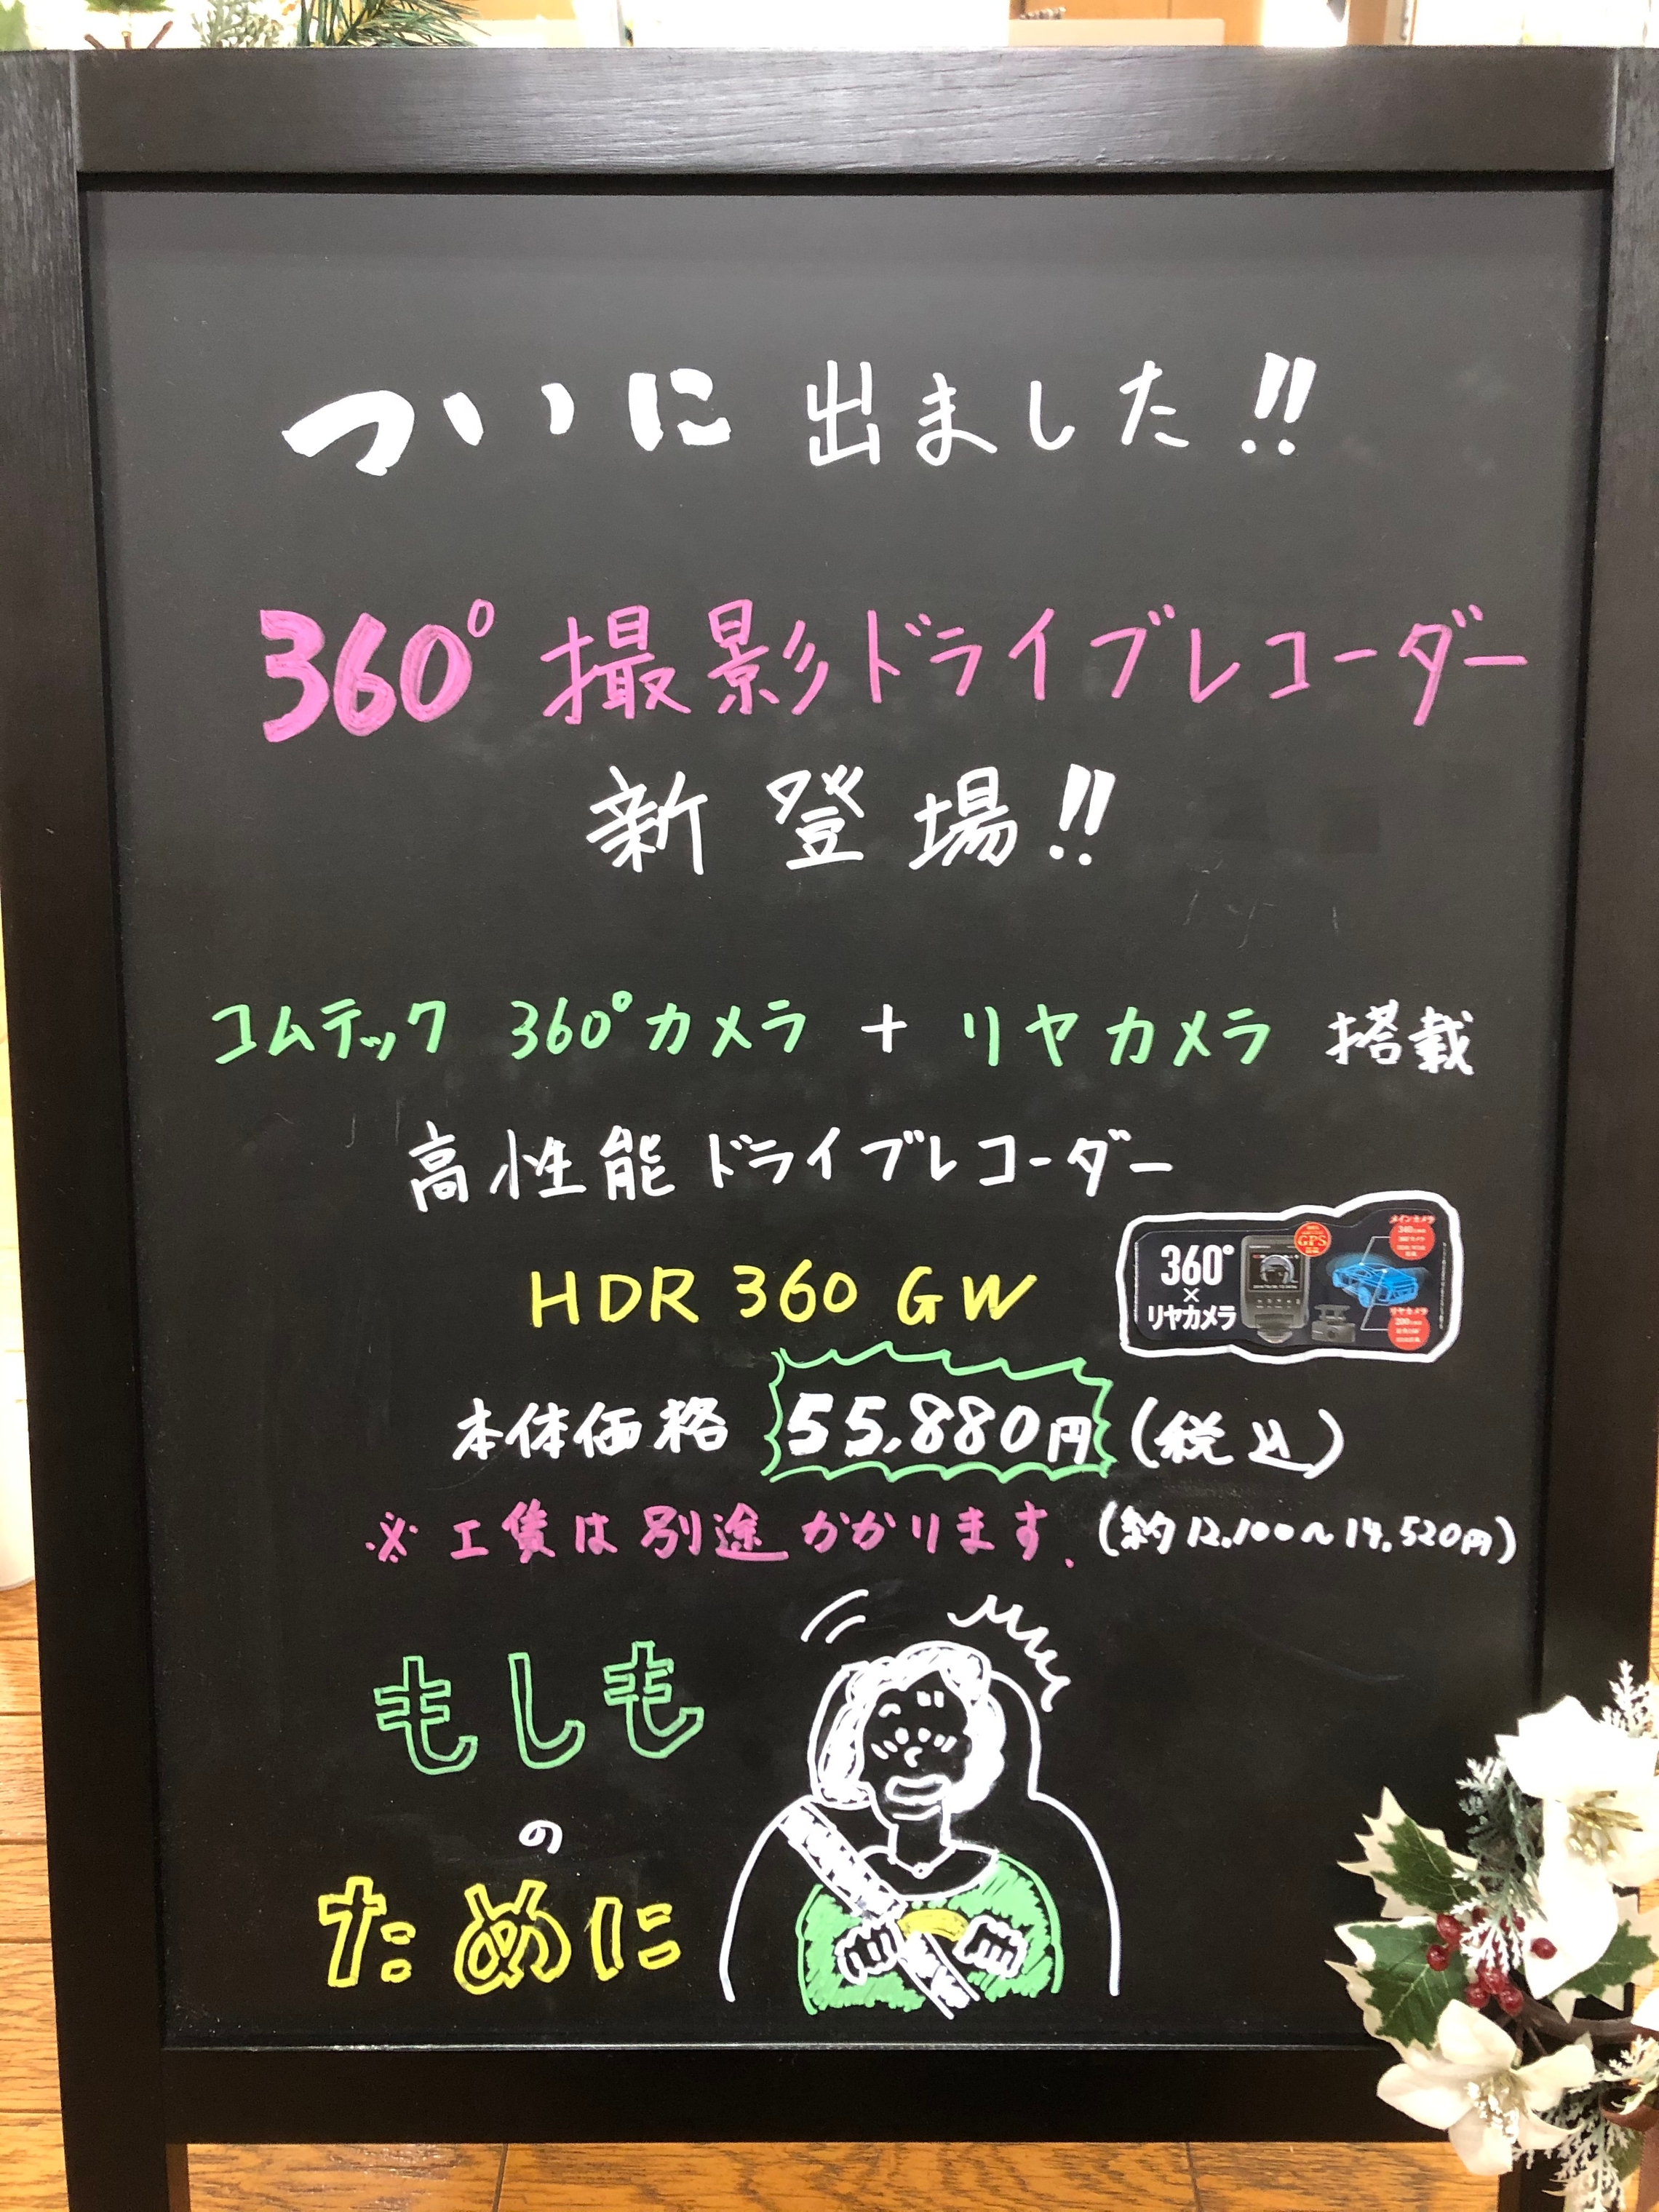 ついに出ました!!
360°撮影ドライブレコーダー
新登場!!
コムテック 360°カメラ + リヤカメラ 搭載
高性能ドライブレコーダー
HDR 360 GW
360°
×
リヤカメラ
GPS
メインカメラ
340
リヤカメラ
200
本体価格 55,880円(税込)
※工賃は別途かかります. (約12,100〜14,520円)
もしも
の
ために